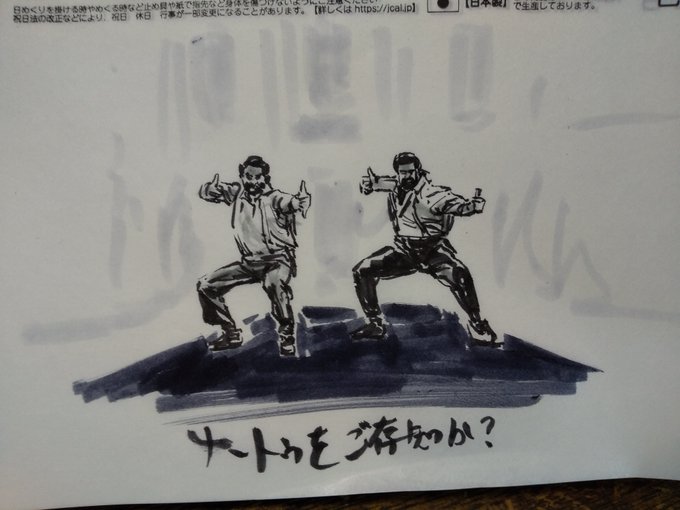 日めくりを掛ける時やめくる時など止め具や紙で指先など身体を傷つけないようにご注意ください
祝日法の改正などにより、祝日 休日 行事が一部変更になることがあります。【詳しくはhttps://jcal.jp】
【日本製】
で生産しております。
ナートゥをご存知か？